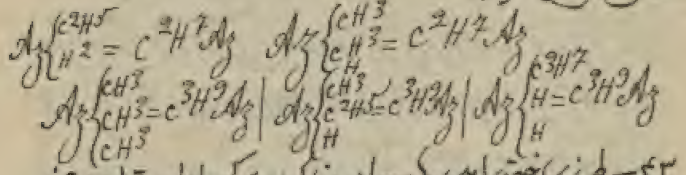 Az{C²H⁵ H² = C²H⁷Az   Az{CH³ CH³ H = C²H⁷Az
Az{CH³ CH³ CH³ = C³H⁹Az | Az{CH³ C²H⁵ H = C³H⁹Az | Az{C³H⁷ H H = C³H⁹Az